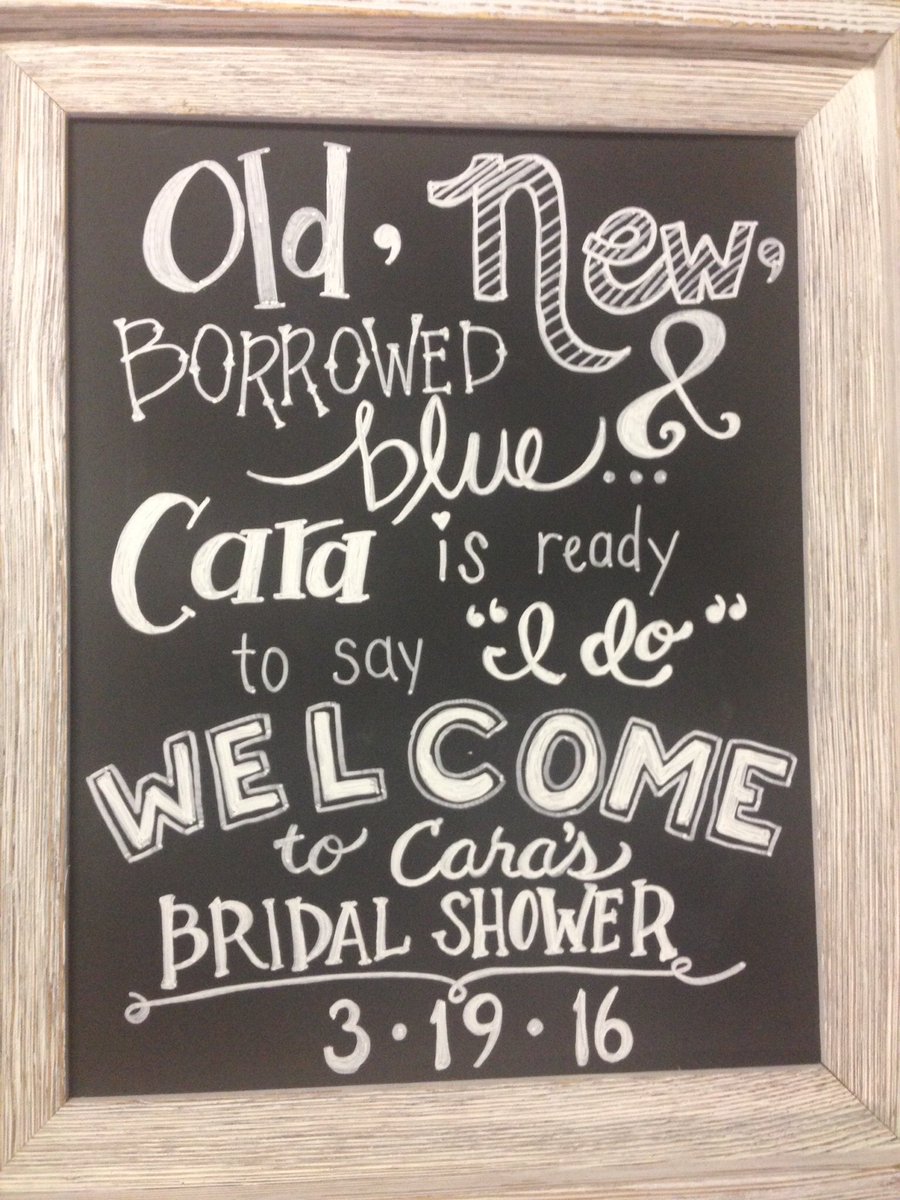 Old, New,
BORROWED &
blue...
Cara is ready
to say "I do"
WELCOME
to Cara's
BRIDAL SHOWER
3·19·16